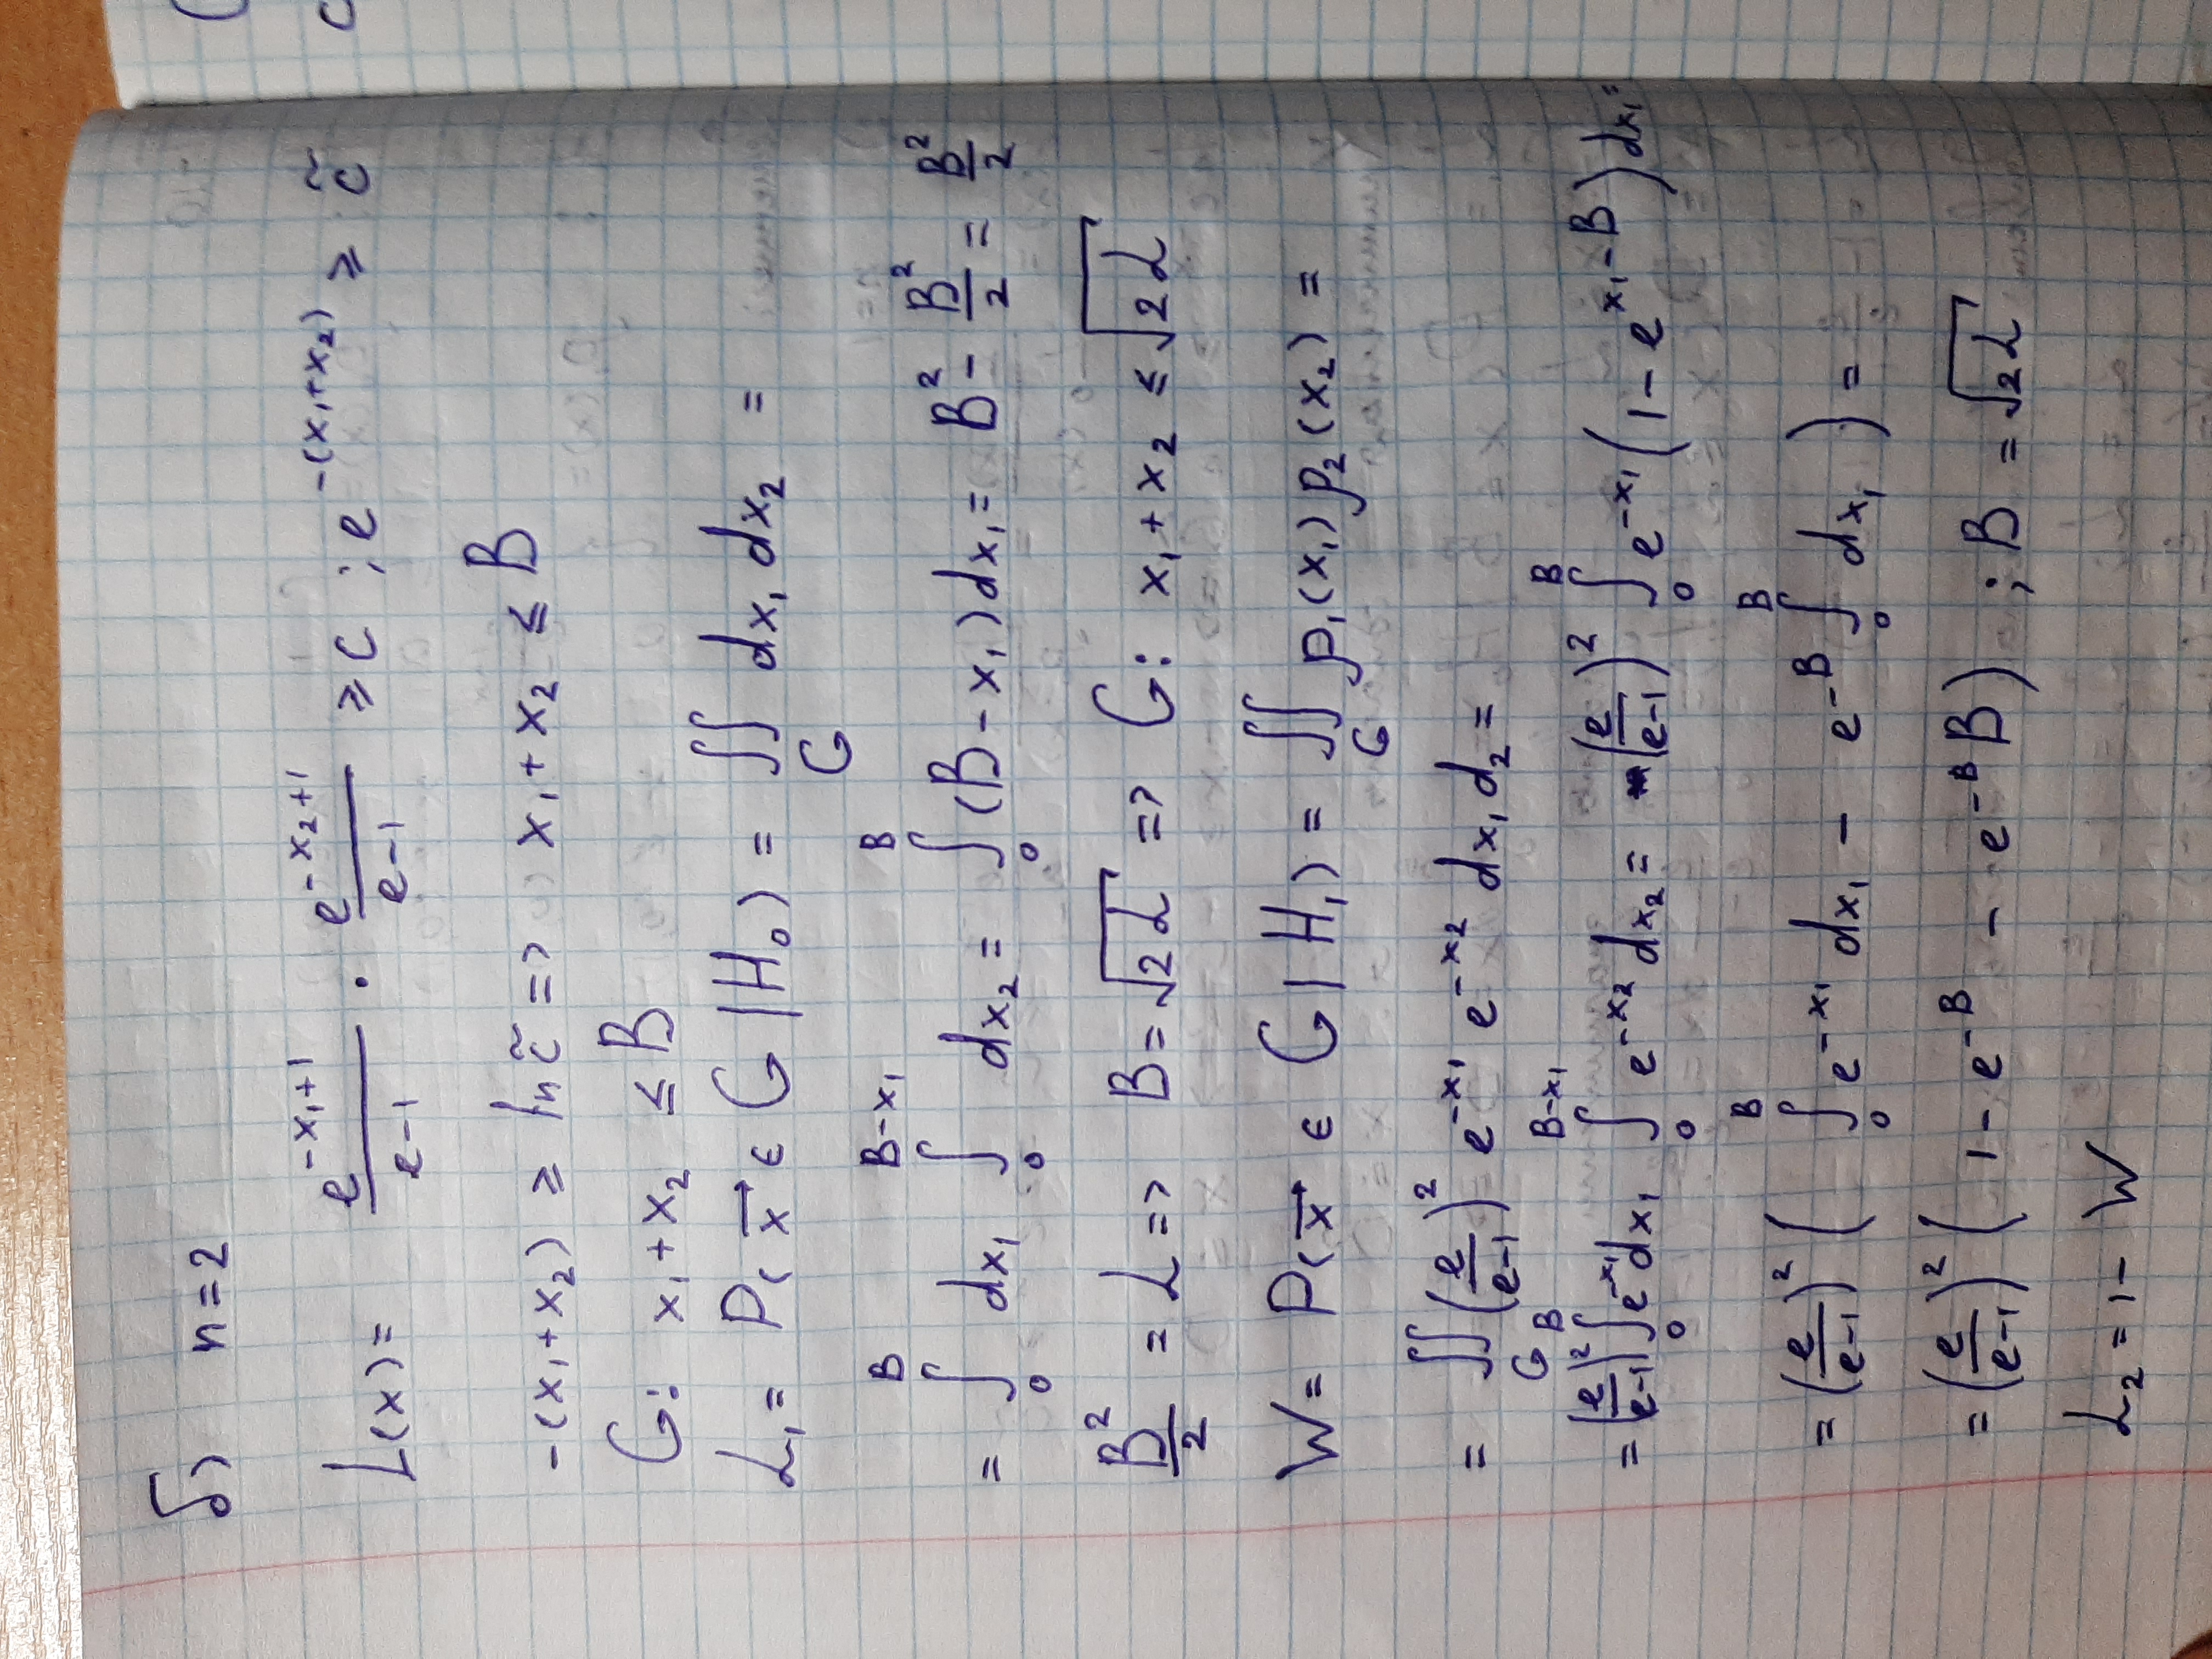 б) n=2
L(x) = e^{-x₁+1}/(e-1) · e^{-x₂+1}/(e-1) ≥ c ; e^{-(x₁+x₂)} ≥ c̃
-(x₁+x₂) ≥ ln c̃ => x₁+x₂ ≤ B
G: x₁+x₂ ≤ B
L₁ = P(x⃗ ∈ G | H₀) = ∬_G dx₁ dx₂ =
= ∫_0^B dx₁ ∫_0^{B-x₁} dx₂ = ∫_0^B (B-x₁)dx₁ = B² - B²/2 = B²/2
B²/2 = L => B = √(2L) => G: x₁+x₂ ≤ √(2L)
W = P(x⃗ ∈ G | H₁) = ∬_G p₁(x₁) p₂(x₂) =
= ∬_G (e/(e-1))² e^{-x₁} e^{-x₂} dx₁ d₂ =
= (e/(e-1))² ∫_0^B e^{-x₁} dx₁ ∫_0^{B-x₁} e^{-x₂} dx₂ = (e/(e-1))² ∫_0^B e^{-x₁} (1 - e^{x₁-B}) dx₁ =
= (e/(e-1))² ( ∫_0^B e^{-x₁} dx₁ - e^{-B} ∫_0^B dx₁ ) =
= (e/(e-1))² ( 1 - e^{-B} - e^{-B} B ) ; B = √(2L)
L₂ = 1 - W